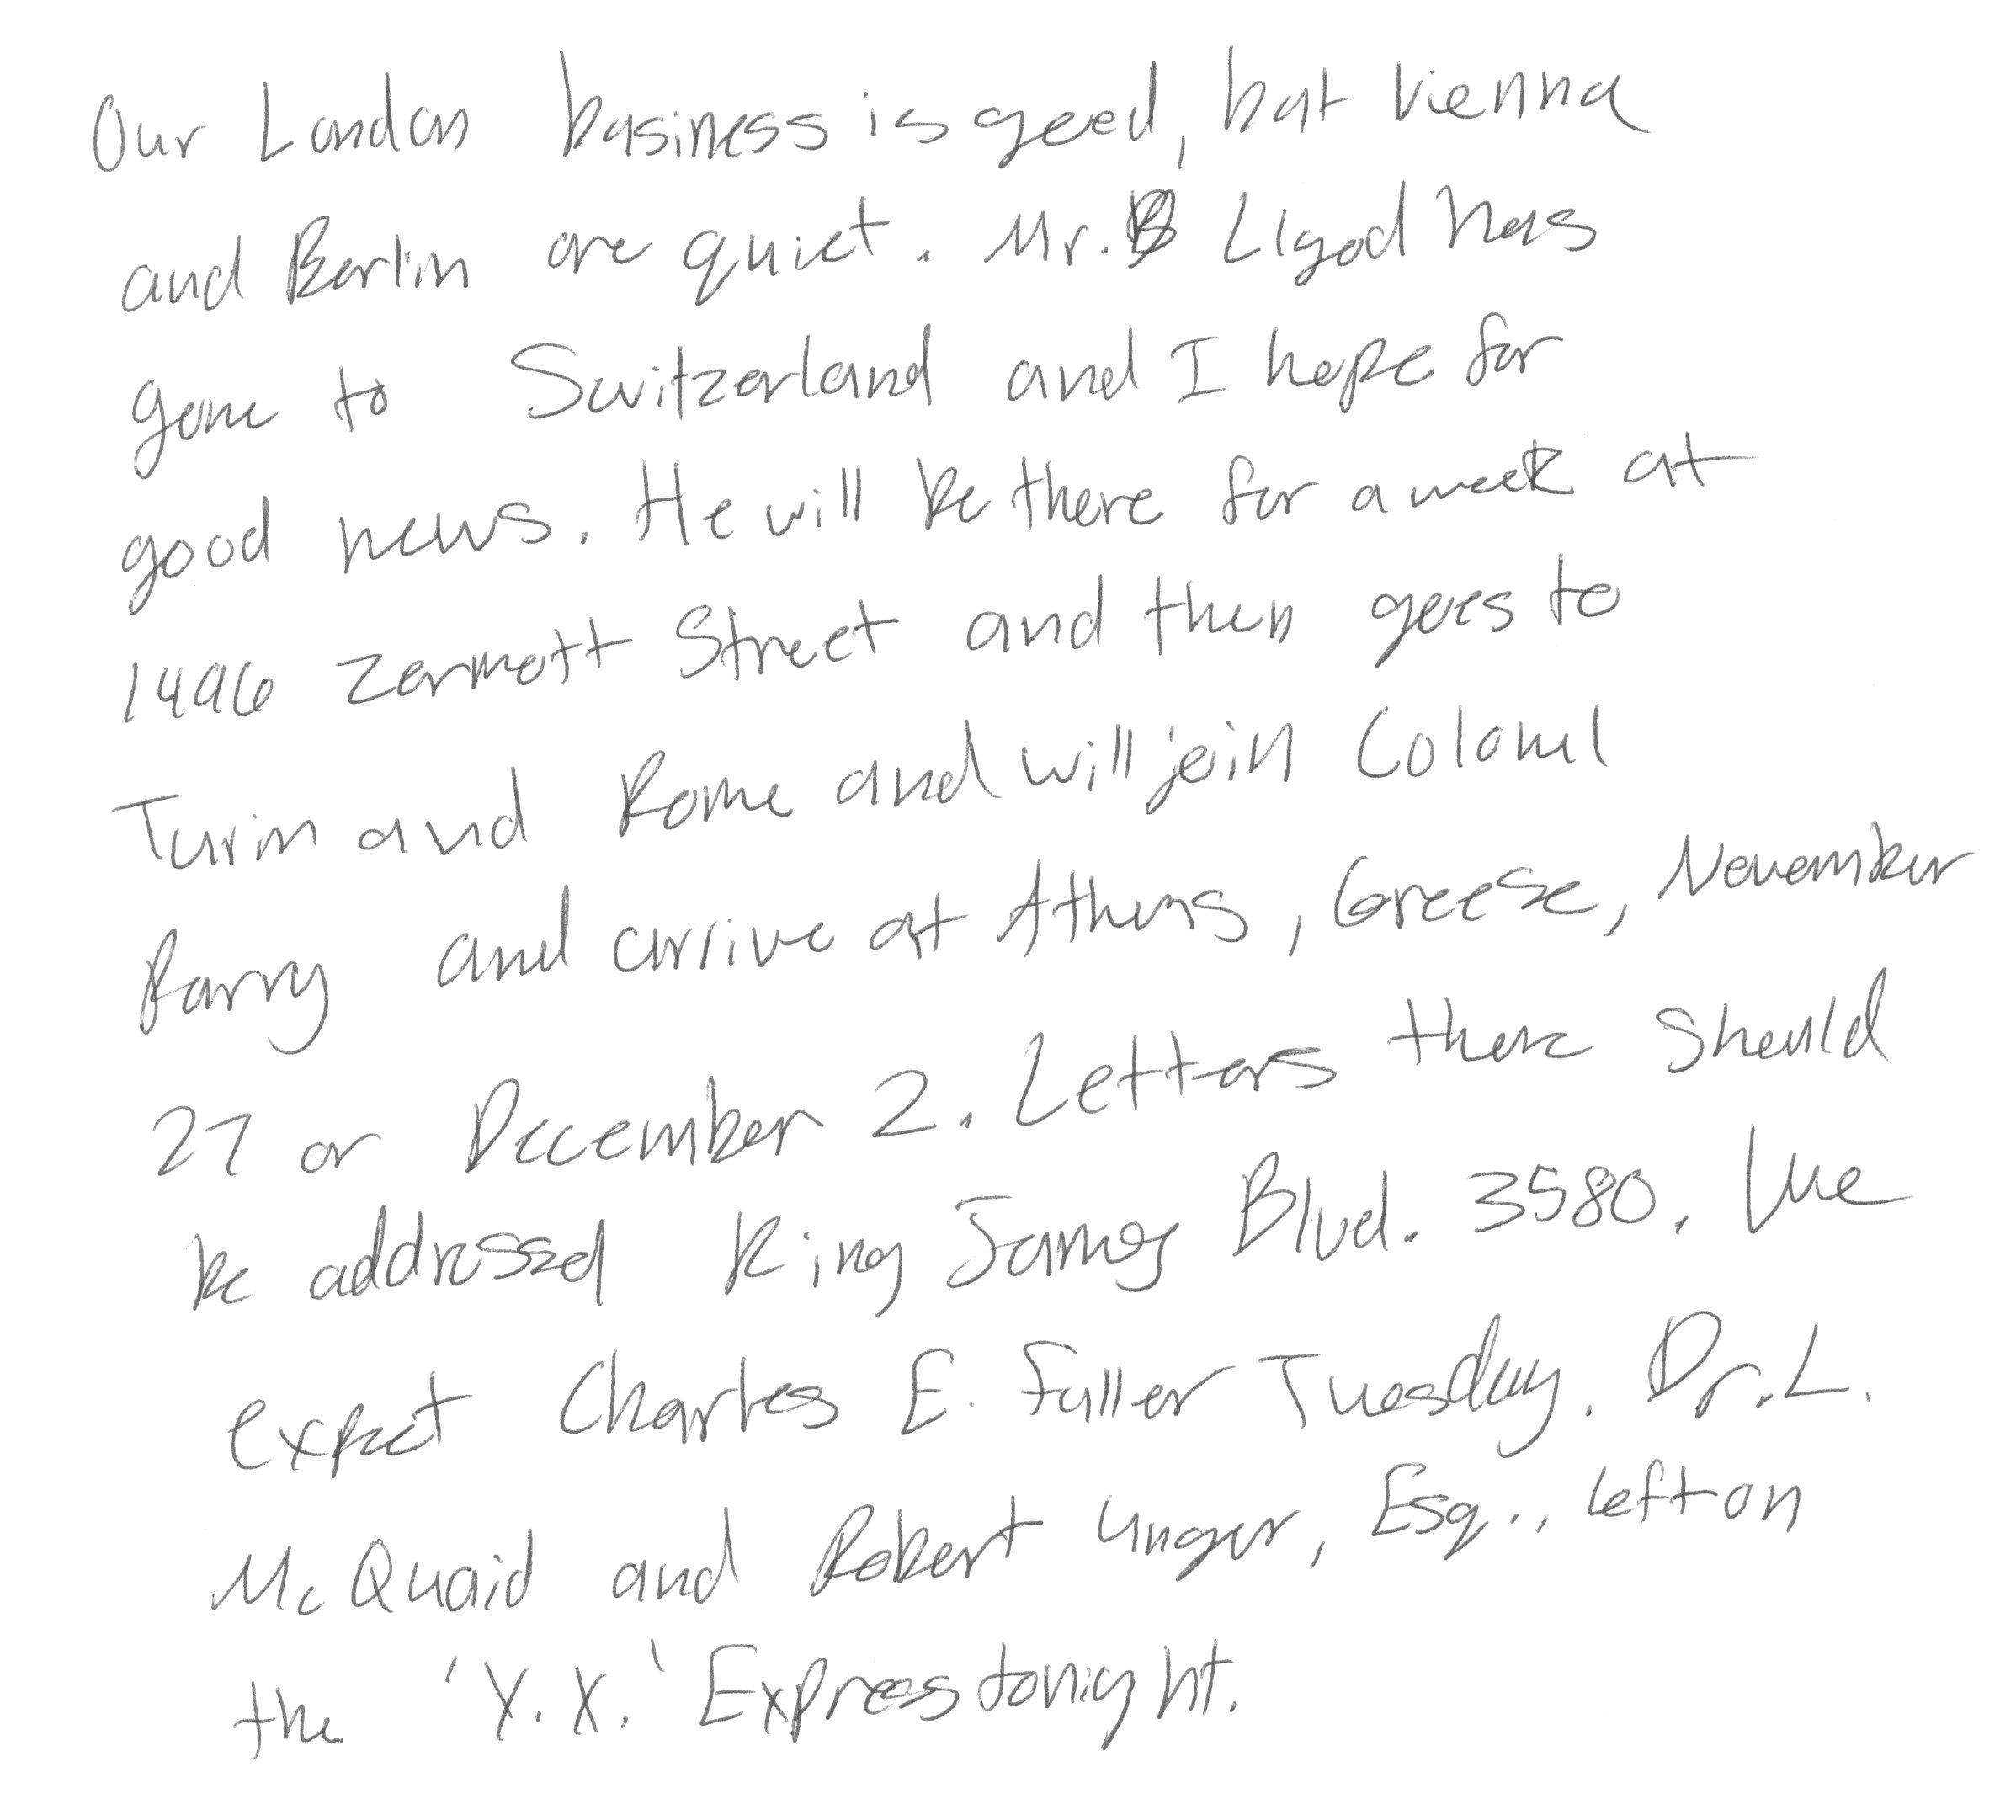 Our London business is good, but Vienna
and Berlin are quiet. Mr. Llyod has
gone to Switzerland and I hope for
good news. He will be there for a week at
1496 Zermott Street and then goes to
Turin and Rome and will join Colonel
Parry and arrive at Athens, Greese, November
27 or December 2. Letters there should
be addressed King James Blvd. 3580. We
expect Charles E. Fuller Tuesday. Dr. L.
McQuaid and Robert Unger, Esq., left on
the 'Y.X.' Express tonight.